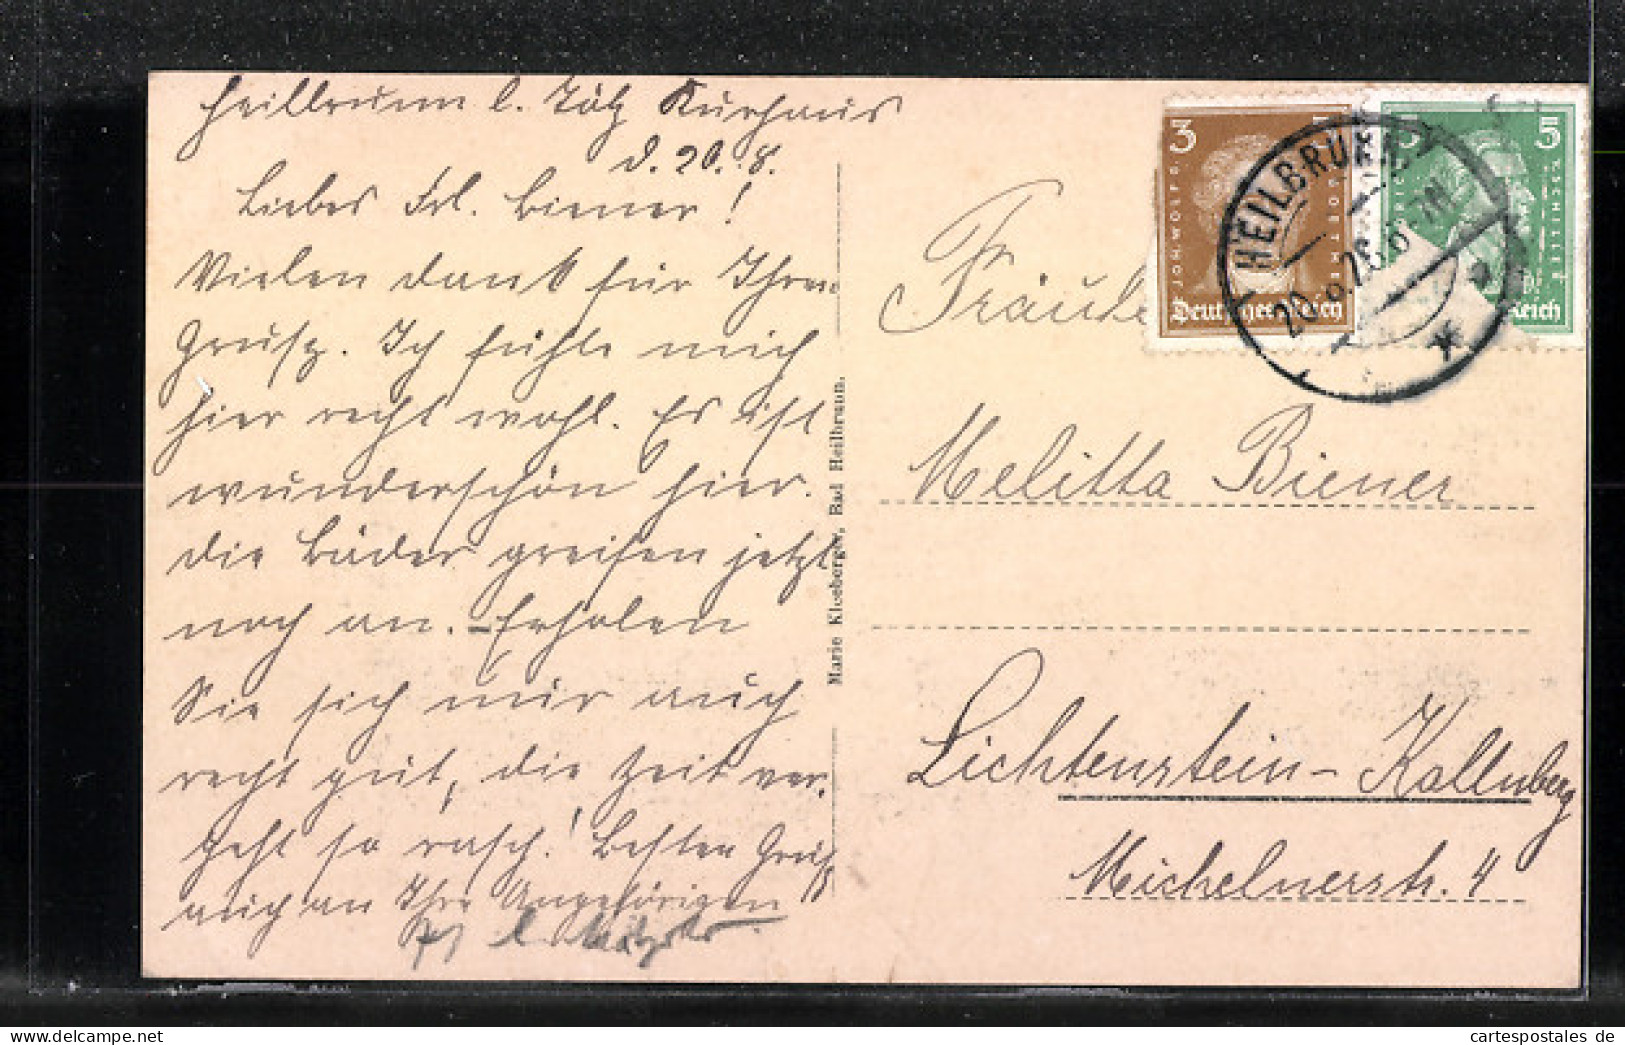 Heilbrunn b. Tölz Kurhaus
d. 20. 8.
Liebes Frl. Biener!
Vielen Dank für Ihren
Gruß. Ich fühle mich
hier recht wohl. Es ist
wunderschön hier.
Die Bäder greifen jetzt
noch an. – Erholen
Sie sich nur auch
recht gut, die Zeit ver-
geht so rasch! Besten Gruß
auch an Ihre Angehörigen
Marie Kloeberger, Bad Heilbrunn.
3
JOH WOLFG
V GOETHE
Deutsches Reich
5 5
F. V. SCHILLER
Reich
HEILBRUNN
20. 8. 26. 6-7 N
Fräulein
Melitta Biener
Lichtenstein-Kallnberg
Michelnerstr. 4
cartespostales de